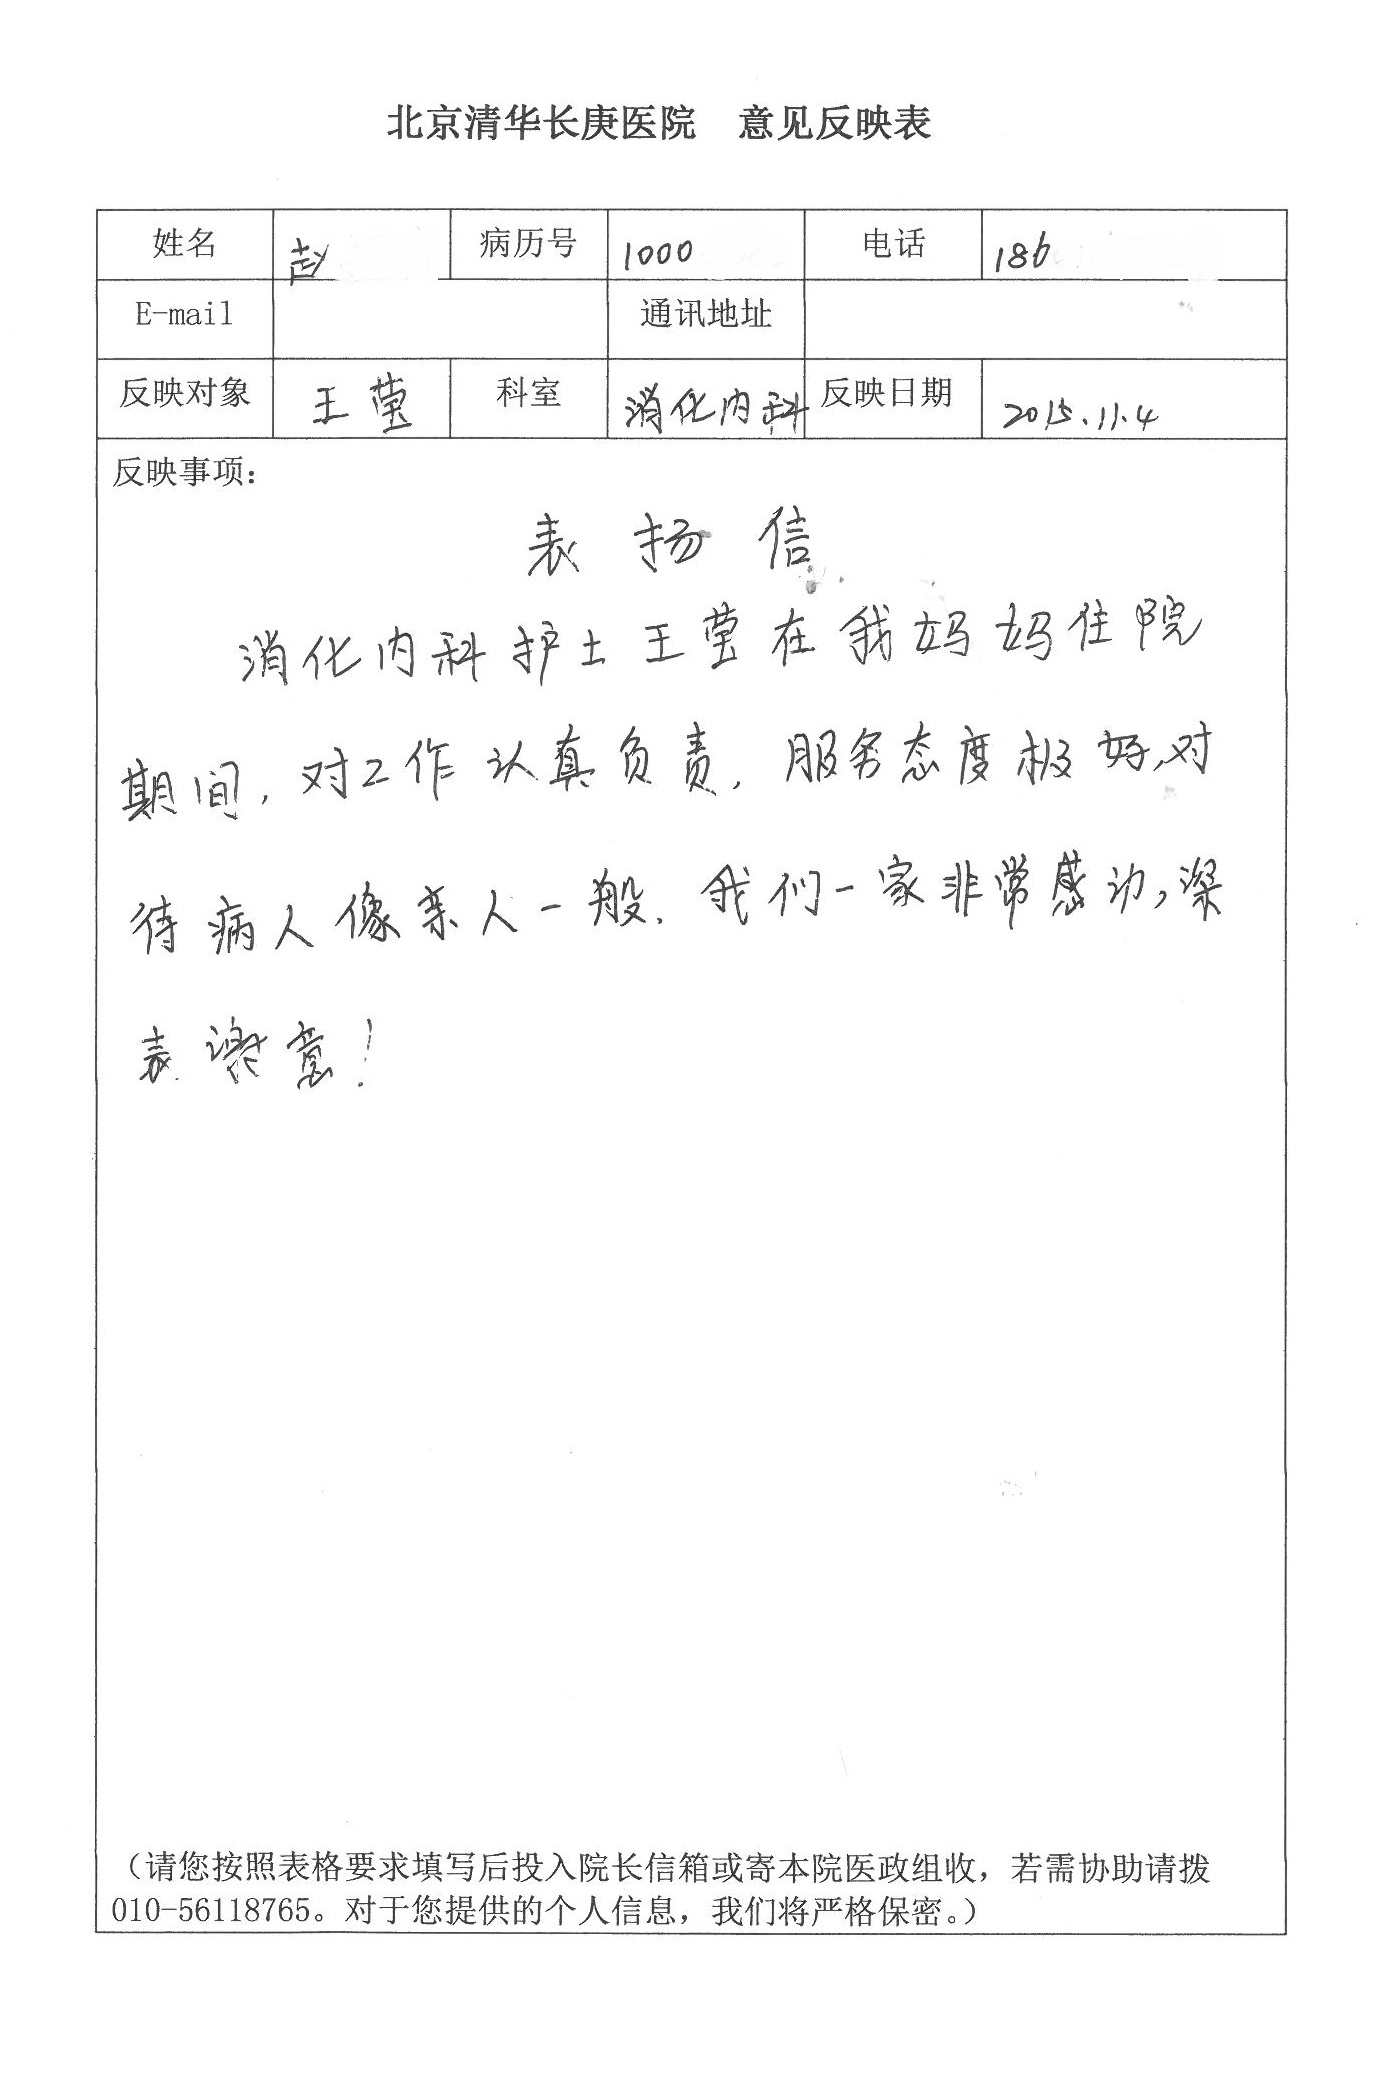 北京清华长庚医院 意见反映表
姓名 赵 病历号 1000 电话 186
E-mail 通讯地址
反映对象 王莹 科室 消化内科 反映日期 2015.11.4
反映事项：
表扬信
消化内科护士王莹在我妈妈住院
期间，对工作认真负责，服务态度极好，对
待病人像亲人一般。我们一家非常感动，深
表谢意！
（请您按照表格要求填写后投入院长信箱或寄本院医政组收，若需协助请拨
010-56118765。对于您提供的个人信息，我们将严格保密。）